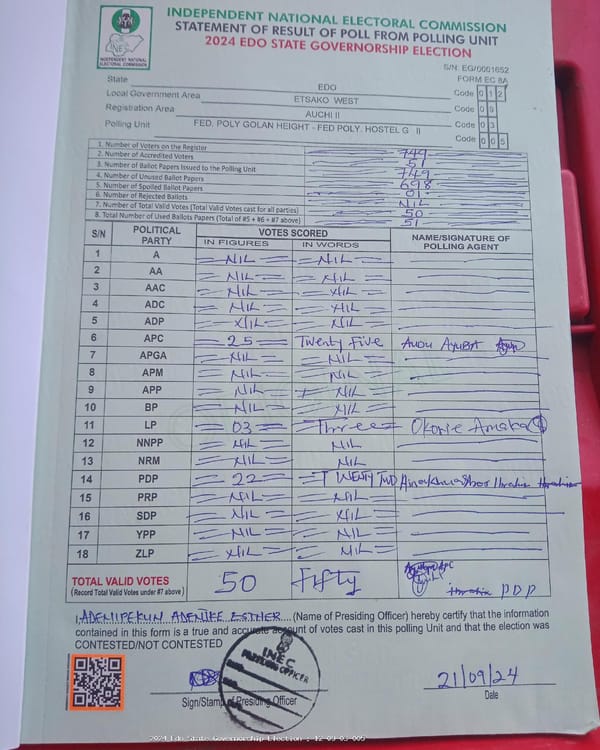 INDEPENDENT NATIONAL ELECTORAL COMMISSION
STATEMENT OF RESULT OF POLL FROM POLLING UNIT
2024 EDO STATE GOVERNORSHIP ELECTION
INEC
INDEPENDENT NATIONAL ELECTORAL COMMISSION
S/N: EG/0001652
FORM EC 8A
State EDO Code 012
Local Government Area ETSAKO WEST Code
Registration Area AUCHI II Code 03
Polling Unit FED. POLY GOLAN HEIGHT - FED POLY. HOSTEL G II Code 005
1. Number of Voters on the Register 749
2. Number of Accredited Voters 51
3. Number of Ballot Papers Issued to the Polling Unit 749
4. Number of Unused Ballot Papers 698
5. Number of Spoiled Ballot Papers 01
6. Number of Rejected Ballots NIL
7. Number of Total Valid Votes (Total Valid Votes cast for all parties) 50
8. Total Number of Used Ballots Papers (Total of #5 + #6 + #7 above) 51
S/N POLITICAL PARTY VOTES SCORED NAME/SIGNATURE OF POLLING AGENT
IN FIGURES IN WORDS
1 A NIL NIL
2 AA NIL NIL
3 AAC NIL NIL
4 ADC NIL NIL
5 ADP NIL NIL
6 APC 25 Twenty Five AUDU AYUBA
7 APGA NIL NIL
8 APM NIL NIL
9 APP NIL NIL
10 BP NIL NIL
11 LP 03 Three Okorie Amaka
12 NNPP NIL NIL
13 NRM NIL NIL
14 PDP 22 TWENTY TWO Ibrahim
15 PRP NIL NIL
16 SDP NIL NIL
17 YPP NIL NIL
18 ZLP NIL NIL
TOTAL VALID VOTES 50 Fifty APC
(Record Total Valid Votes under #7 above) Ibrahim PDP
I, ADEMIPEKUN ADENIKE ESTHER (Name of Presiding Officer) hereby certify that the information
contained in this form is a true and accurate account of votes cast in this polling Unit and that the election was
CONTESTED/NOT CONTESTED
INEC
PRESIDING OFFICER
21/09/24
Sign/Stamp of Presiding Officer Date
2024 Edo State Governorship Election : 12-09-03-005